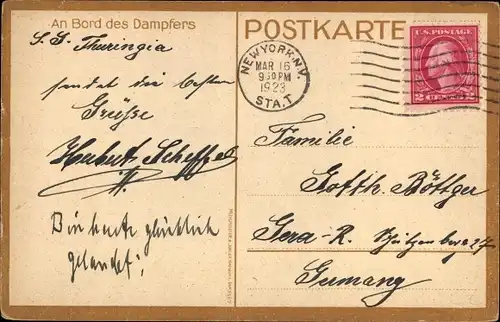 An Bord des Dampfers
S. S. Thuringia
sendet die besten
Grüße
Herbert Scheffel
Bin heute glücklich
gelandet!
POSTKARTE
NEW YORK, N.Y.
MAR 16
9 30 PM
1923
STA. T
U.S. POSTAGE
2 CENTS 2
Familie
Gotth. Böttger
Gera-R. Schützenberg 27
Germany